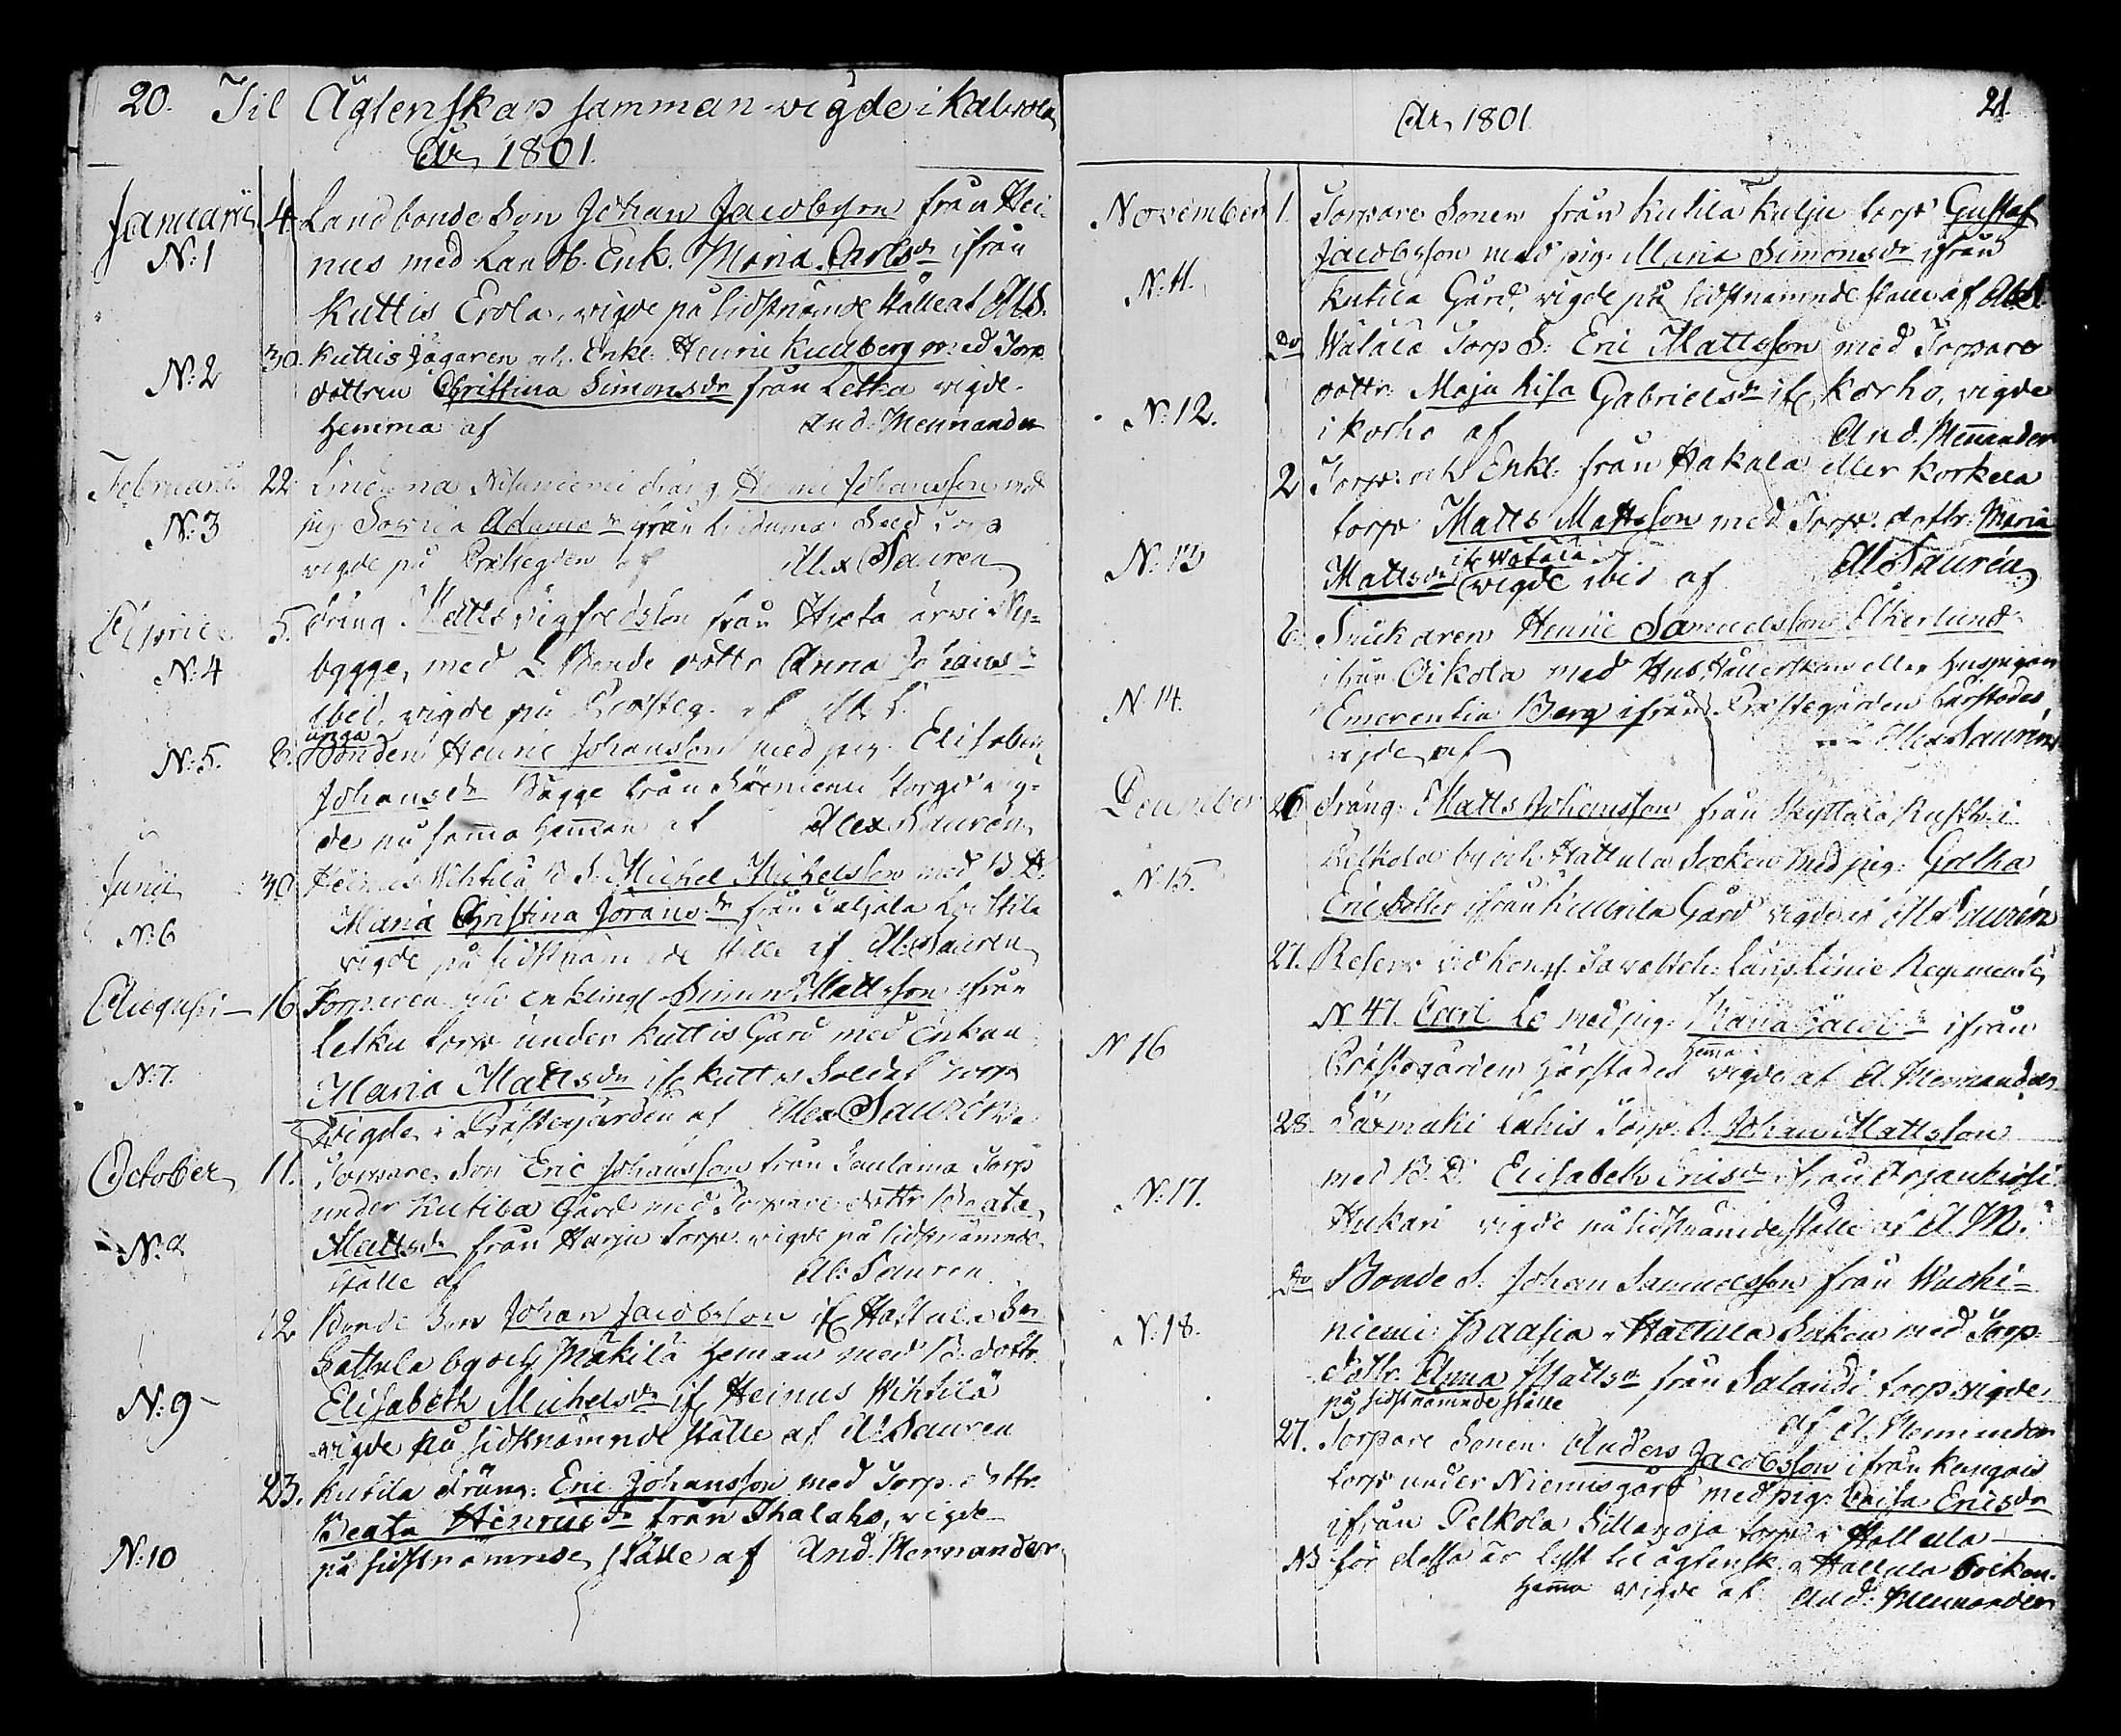 20. Til Ägtenskap samman-vigde i Kalvola
År 1801.
Januarii 4. Landbonde Son Johan Jacobsson från Hei-
N:1 nus med Landb. Enk. Maria Carlsdr ifrån
Kuttis Erola, vigde på sidstnämde ställe af Al S.
N:2 30. Kuttis Jägaren och Enkl. Henric Kullberg med Torp.
dottren Christina Simonsdr från Letka vigde
hemma af And: Mennander
Februarii 22. dräng Henric Johansson med
N:3 pig. Adamsdr från Torp
vigde på Prästegden af Alex Saurén
April 5. dräng Matts Sigfredsson från Ny-
N:4 bygge, med L Bonde dottr Anna Johansdr
ibid. vigde på Prästeg. af Al. S.
unga
N:5. 6. Bonden Henric Johansson med pig. Elisabeth
Johansdr Bagge från vig-
de på samma hemman af Alex Saurén
Junii 30. Heinus Wihtilä B. S. Michel Michelsson med B. D.
N:6 Maria Christina Göransdr från
vigde på sidstnämnde ställe af Al: Saurén
Augusti 16. Torparen och enklingl Simon Mattsson ifrån
Letku torp under Kuttis Gård med Enkan
N:7. Maria Mattsdr if Kuttis Soldat torp
vigde i Prästegården af Alex Saurén
October 11. Torpare Son Eric Johansson från Torp
under Kutila Gård med Torpare dottr Beata
N:8 Mattsdr från Harju torp vigde på sidstnämnde
ställe af Al: Saurén
12 Bonde Son Johan Jacobsson if Hattula Sn
Sattula by och Mäkilä heman med B. dottr.
N:9 Elisabeth Michelsdr if Heinus Wihtilä
vigde på sidstnämnde ställe af Al Saurén
23. Kutila dräng: Eric Johansson med Torp. dottr
Beata Henricsdr från Ihalaho, vigde
N:10 på sidstnämnde ställe af And. Mennander
År 1801 21.
November 1. Torpare Sonen från Kutila Kulju torp Gustaf
Jacobsson med pig. Maria Simonsdr ifrån
N:11. Kutila Gård, vigde på sidstnämnde ställe af Al S.
do Wätälä Torp S: Eric Mattsson med Torpare
dottr. Maja Lisa Gabrielsdr if Korho, vigde
N:12. i Korho af And. Mennander
2 Torp. och Enkl: från Hakala eller Korkela
torp Matts Mattsson med Torp. dottr. Maria
if Wätälä
N:13 Mattsdr vigde ibid af Al Saurén
6. Snickaren Henric Samuelsson Åkerlund
ifrån Oikola med Hushållerskan eller huspigan
N:14. Emerentia Berg ifrån Prästegården härstädes
vigde af Alex Saurén
December 26 dräng Matts Johansson från Skyttälä Rusth. i
by och Hattula Socken med pig: Gretha
N:15. Ericsdotter ifrån Kutila Gård vigde af Al Saurén
27. Reserv vid Kongl. Tavasteh. läns Linie Regemente
N 47. Carl Lo med pig: Maria Jacobsdr ifrån
hema
N 16 Prästegården härstädes vigde af A. Mennander
28. Särmäki Lahis Torp. S. Johan Mattsson
med B. D. Elisabeth Ericsdr ifrån
N:17. Hukari vigde på sidstnämde ställe af A. M.
do Bonde S: Johan Samuelsson från Wuohi-
N:18. niemi Paasia i Hattula Soken med Torp.
dottr. Anna Mattsdr från Salandi torp vigde
på sidstnämnde ställe af A. Mennander
27. Torpare Sonen Anders Jacobsson ifrån Kangais
torp under Niemis gård med pig: Caisa Ericsdr
ifrån Pelkola Sillanoja torp i Hattula
NB för dessa är lyst til ägtensk. i Hattula Socken.
hema vigde af And: Mennander